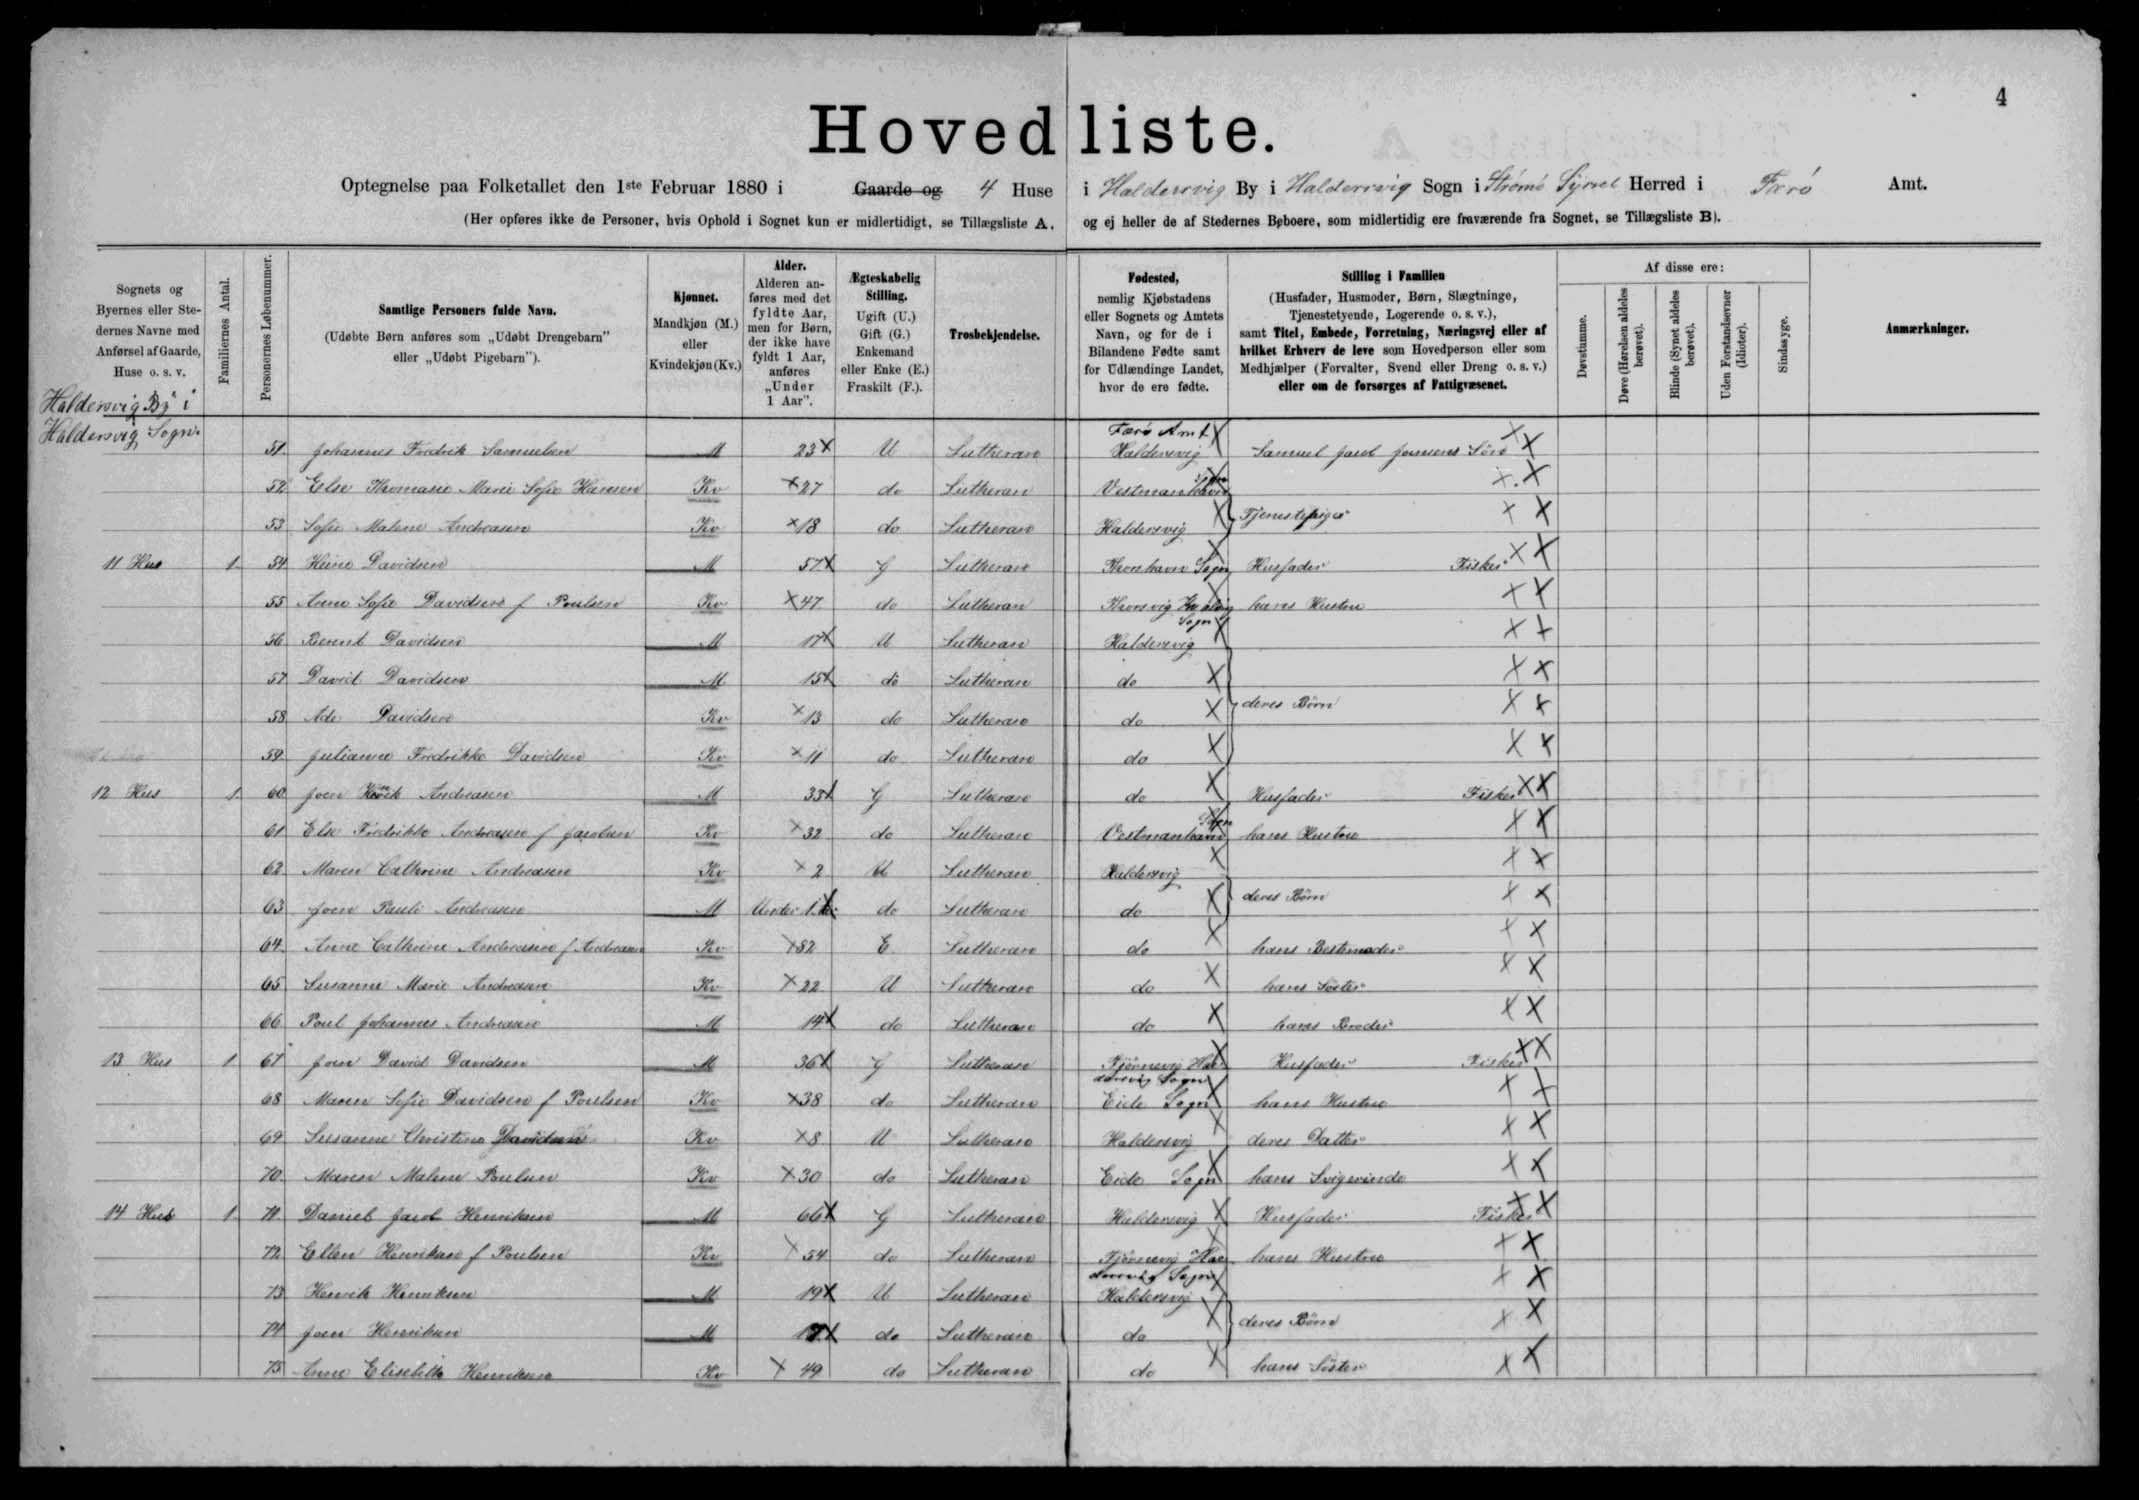 4
Hovedliste.
Optegnelse paa Folketallet den 1ste Februar 1880 i Gaarde og 4 Huse i Haldersvig By i Haldersvig Sogn i Strømø Syssel Herred i Færø Amt.
(Her opføres ikke de Personer, hvis Ophold i Sognet kun er midlertidigt, se Tillægsliste A, og ej heller de af Stedernes Beboere, som midlertidig ere fraværende fra Sognet, se Tillægsliste B).
Sognets og Byernes eller Stedernes Navne med Anførsel af Gaarde, Huse o. s. v.
Familiernes Antal.
Personernes Løbenummer.
Samtlige Personers fulde Navn.
(Udøbte Børn anføres som „Udøbt Drengebarn" eller „Udøbt Pigebarn").
Kjønnet.
Mandkjøn (M.) eller Kvindekjøn (Kv.)
Alder.
Alderen anføres med det fyldte Aar, men for Børn, der ikke have fyldt 1 Aar, anføres „Under 1 Aar".
Ægteskabelig Stilling.
Ugift (U.) Gift (G.) Enkemand eller Enke (E.) Fraskilt (F.).
Trosbekjendelse.
Fødested,
nemlig Kjøbstadens eller Sognets og Amtets Navn, og for de i Bilandene Fødte samt for Udlændinge Landet, hvor de ere fødte.
Stilling i Familien
(Husfader, Husmoder, Børn, Slægtninge, Tjenestetyende, Logerende o. s. v.), samt Titel, Embede, Forretning, Næringsvej eller af hvilket Erhverv de leve som Hovedperson eller som Medhjælper (Forvalter, Svend eller Dreng o. s. v.) eller om de forsørges af Fattigvæsenet.
Af disse ere:
Døvstumme.
Døve (Hørelsen aldeles berøvet).
Blinde (Synet aldeles berøvet).
Uden Forstandsevner (Idioter).
Sindssyge.
Anmærkninger.
Haldersvig By i
Haldersvig Sogn.
51 Johannes Fredrik Samuelsen M 23 U Lutheran Færø Amt Haldersvig Samuel Jacob Jensens Sön
52 Else Thomasie Marie Sofie Hansen Kv 27 do Lutheran Vestmanhavn Sogn
53 Sofie Malene Andreasen Kv 18 do Lutheran Haldersvig Tjenestepiger
11 Hus 1 54 Heine Davidsen M 57 G Lutheran Thorshavn Sogn Husfader Fisker
55 Anne Sofie Davidsen f Poulsen Kv 47 do Lutheran Thorsvig Sogn hans Hustru
56 Berent Davidsen M 17 U Lutheran Haldersvig
57 David Davidsen M 15 do Lutheran do
58 Ade Davidsen Kv 13 do Lutheran do deres Börn
59 Julianne Fredrikke Davidsen Kv 11 do Lutheran do
12 Hus 1 60 Joen Henrik Andreasen M 33 G Lutheran do Husfader Fisker
61 Else Fredrikke Andreasen f Jacobsen Kv 32 do Lutheran Vestmanhavn Sogn hans Hustru
62 Maren Cathrine Andreasen Kv 2 U Lutheran Haldersvig
63 Joen Pauli Andreasen M Under 1 do Lutheran do deres Börn
64 Anne Cathrine Andreasen f Andreasen Kv 82 E Lutheran do hans Bestemoder
65 Susanne Marie Andreasen Kv 22 U Lutheran do hans Söster
66 Poul Johannes Andreasen M 14 do Lutheran do hans Broder
13 Hus 1 67 Joen David Davidsen M 36 G Lutheran Tjörnevig Haldersvig Sogn Husfader Fisker
68 Maren Sofie Davidsen f Poulsen Kv 38 do Lutheran Eide Sogn hans Hustru
69 Susanne Christine Davidsen Kv 8 U Lutheran Haldersvig deres Datter
70 Maren Malene Poulsen Kv 30 do Lutheran Eide Sogn hans Svigerinde
14 Hus 1 71 Daniel Jacob Henriksen M 66 G Lutheran Haldersvig Husfader Fisker
72 Ellen Henriksen f Poulsen Kv 54 do Lutheran Tjörnevig Haldersvig Sogn hans Hustru
73 Henrik Henriksen M 19 U Lutheran Haldersvig
74 Joen Henriksen M 17 do Lutheran do deres Börn
75 Anne Elisebitte Henriksen Kv 49 do Lutheran do hans Söster